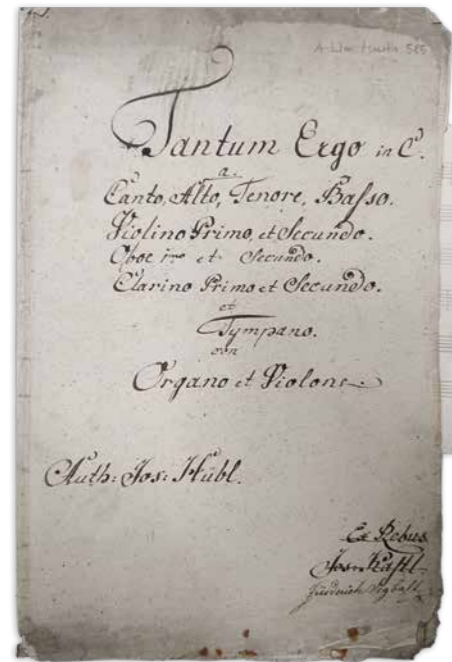 Tantum Ergo in C.
a.
Canto, Alto, Tenore, Basso.
Violino Primo, et Secundo.
Oboe 1mo et Secundo.
Clarino Primo et Secundo.
et
Tympano.
con
Organo et Violone.
Auth: Jos: Hübl.
Ex Rebus